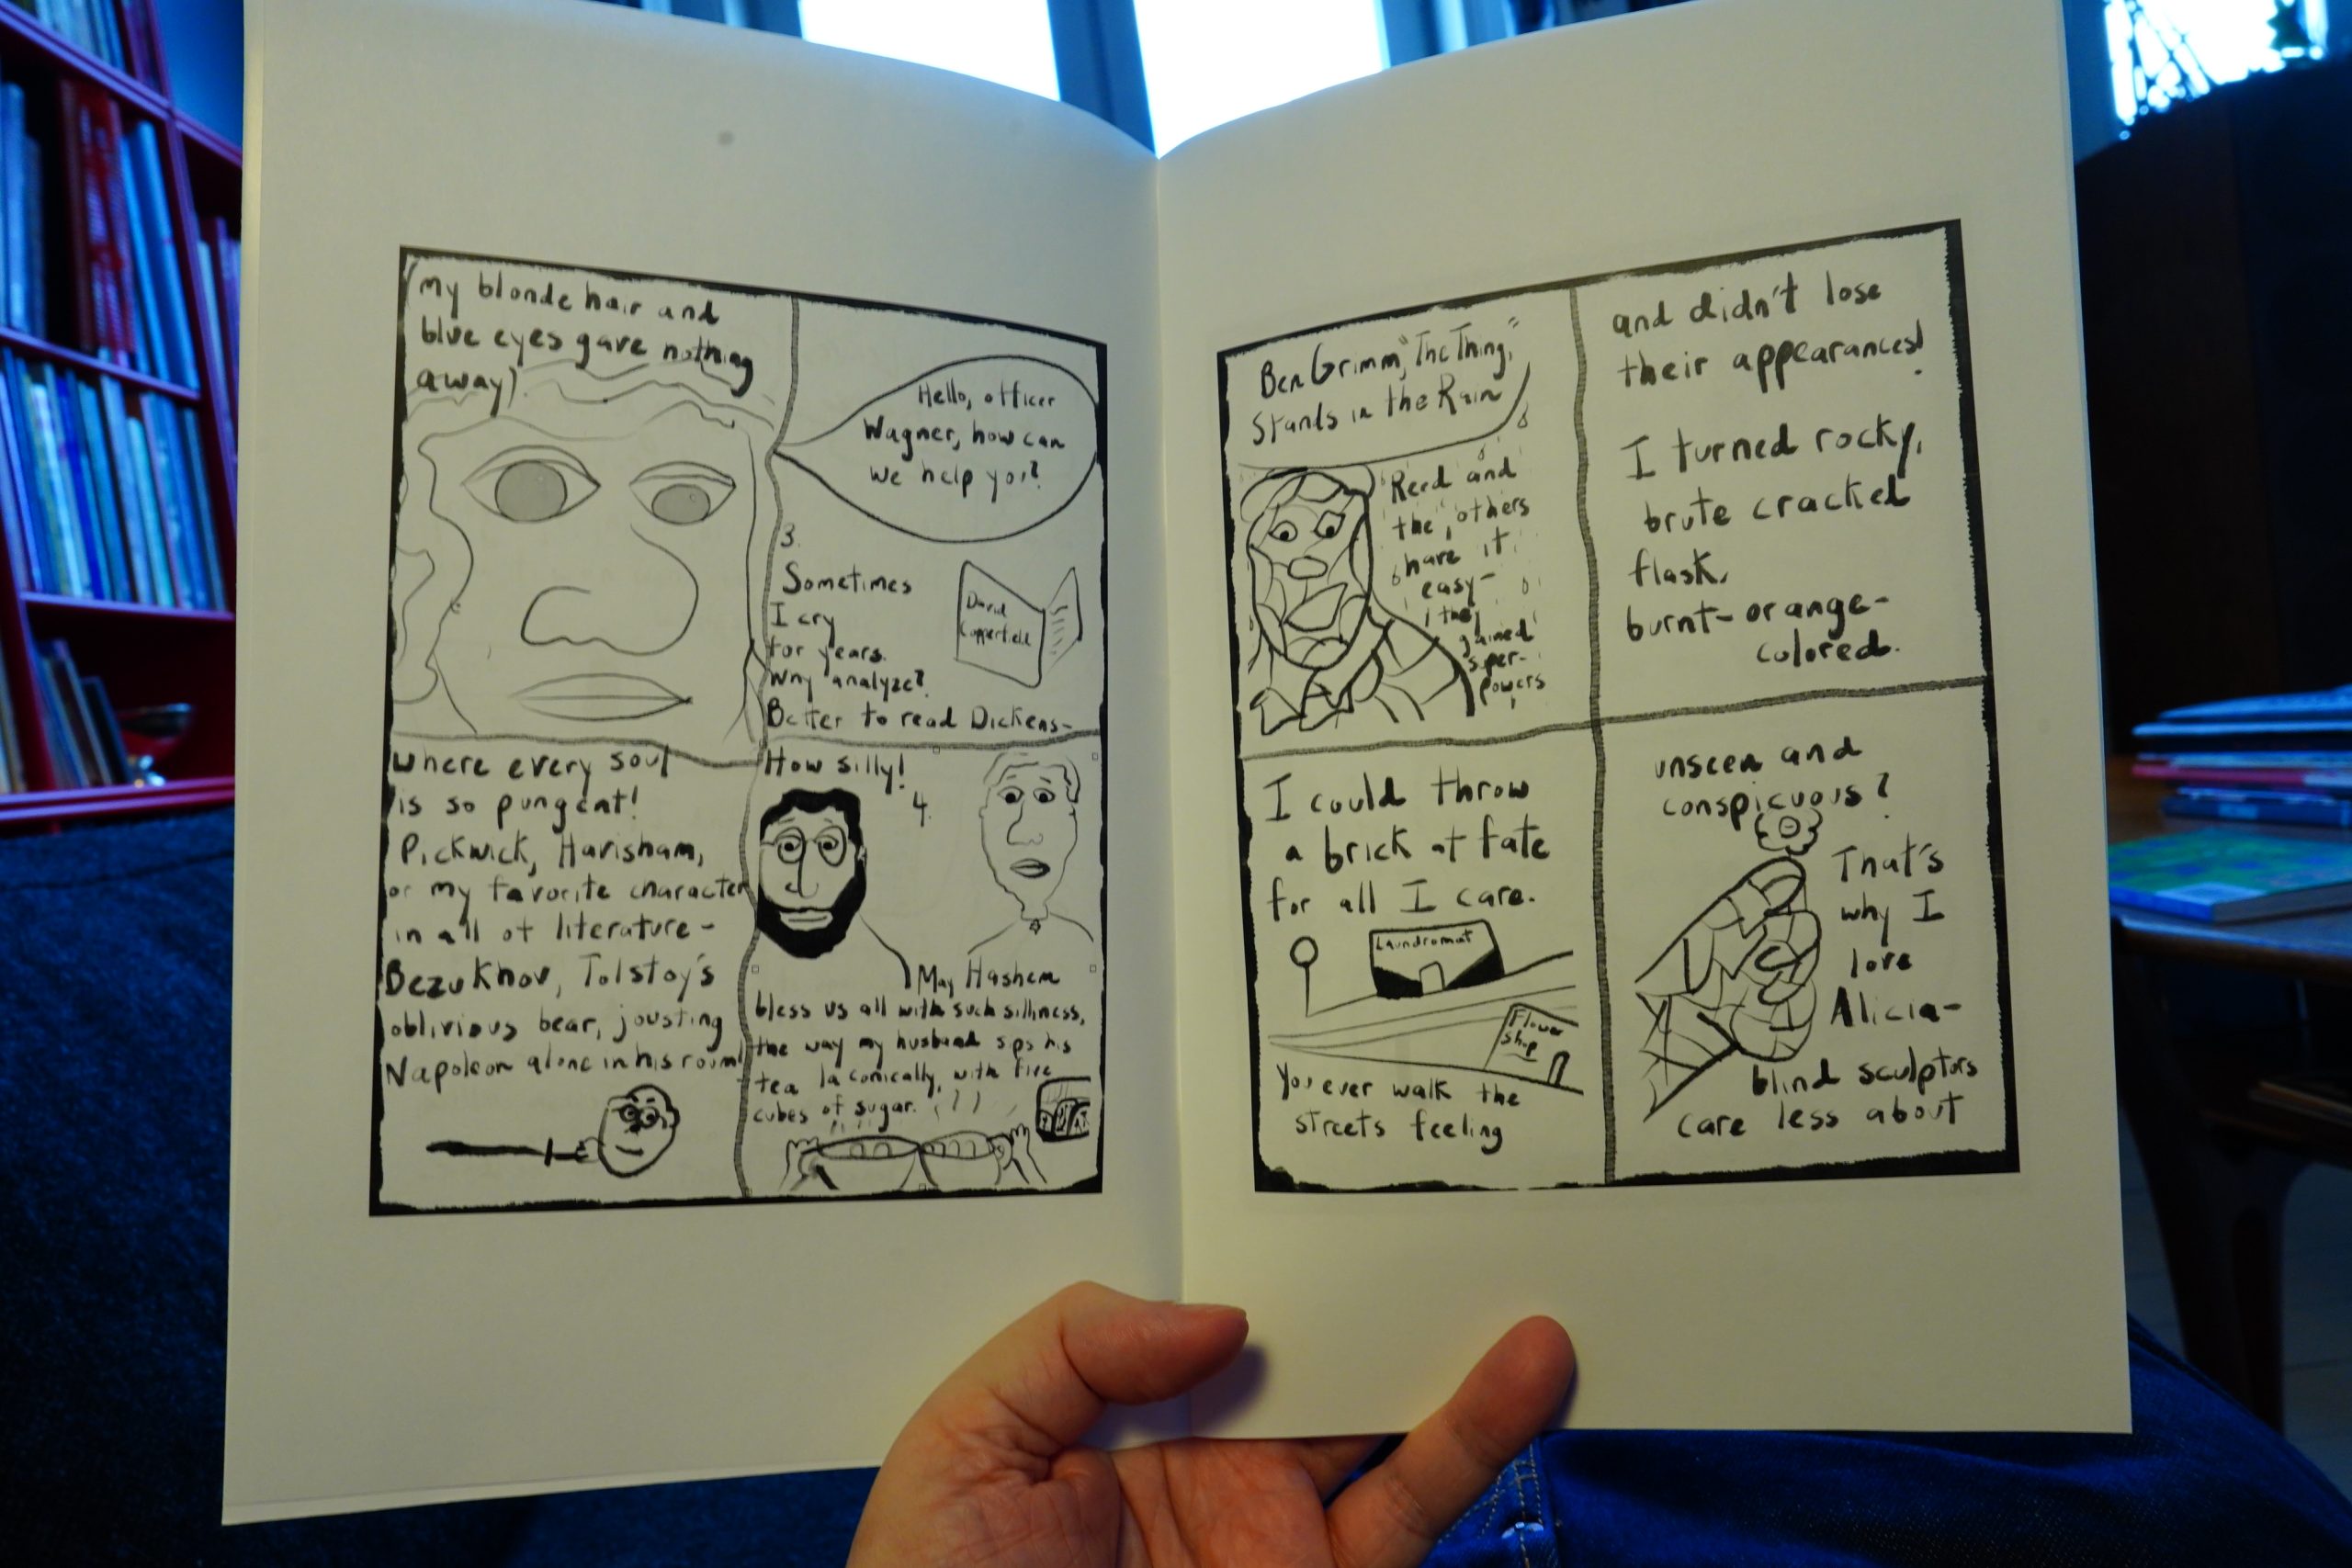 my blonde hair and
blue eyes gave nothing
away).
Hello, officer
Wagner, how can
we help you?
3.
Sometimes
I cry
for years.
Why analyze?
Better to read Dickens-
David
Copperfield
where every soul
is so pungent!
Pickwick, Havisham,
or my favorite character
in all of literature-
Bezukhov, Tolstoy's
oblivious bear, jousting
Napoleon alone in his room!
How silly!
4.
May Hashem
bless us all with such silliness,
the way my husband sips his
tea laconically, with five
cubes of sugar.
Ben Grimm, "The Thing,"
Stands in the Rain
Reed and
the others
have it
easy-
they
gained
super-
powers
and didn't lose
their appearances!
I turned rocky,
brute cracked
flask,
burnt-orange-
colored.
I could throw
a brick at fate
for all I care.
Laundromat
Flower
Shop
You ever walk the
streets feeling
unseen and
conspicuous?
That's
why I
love
Alicia-
blind sculptors
care less about